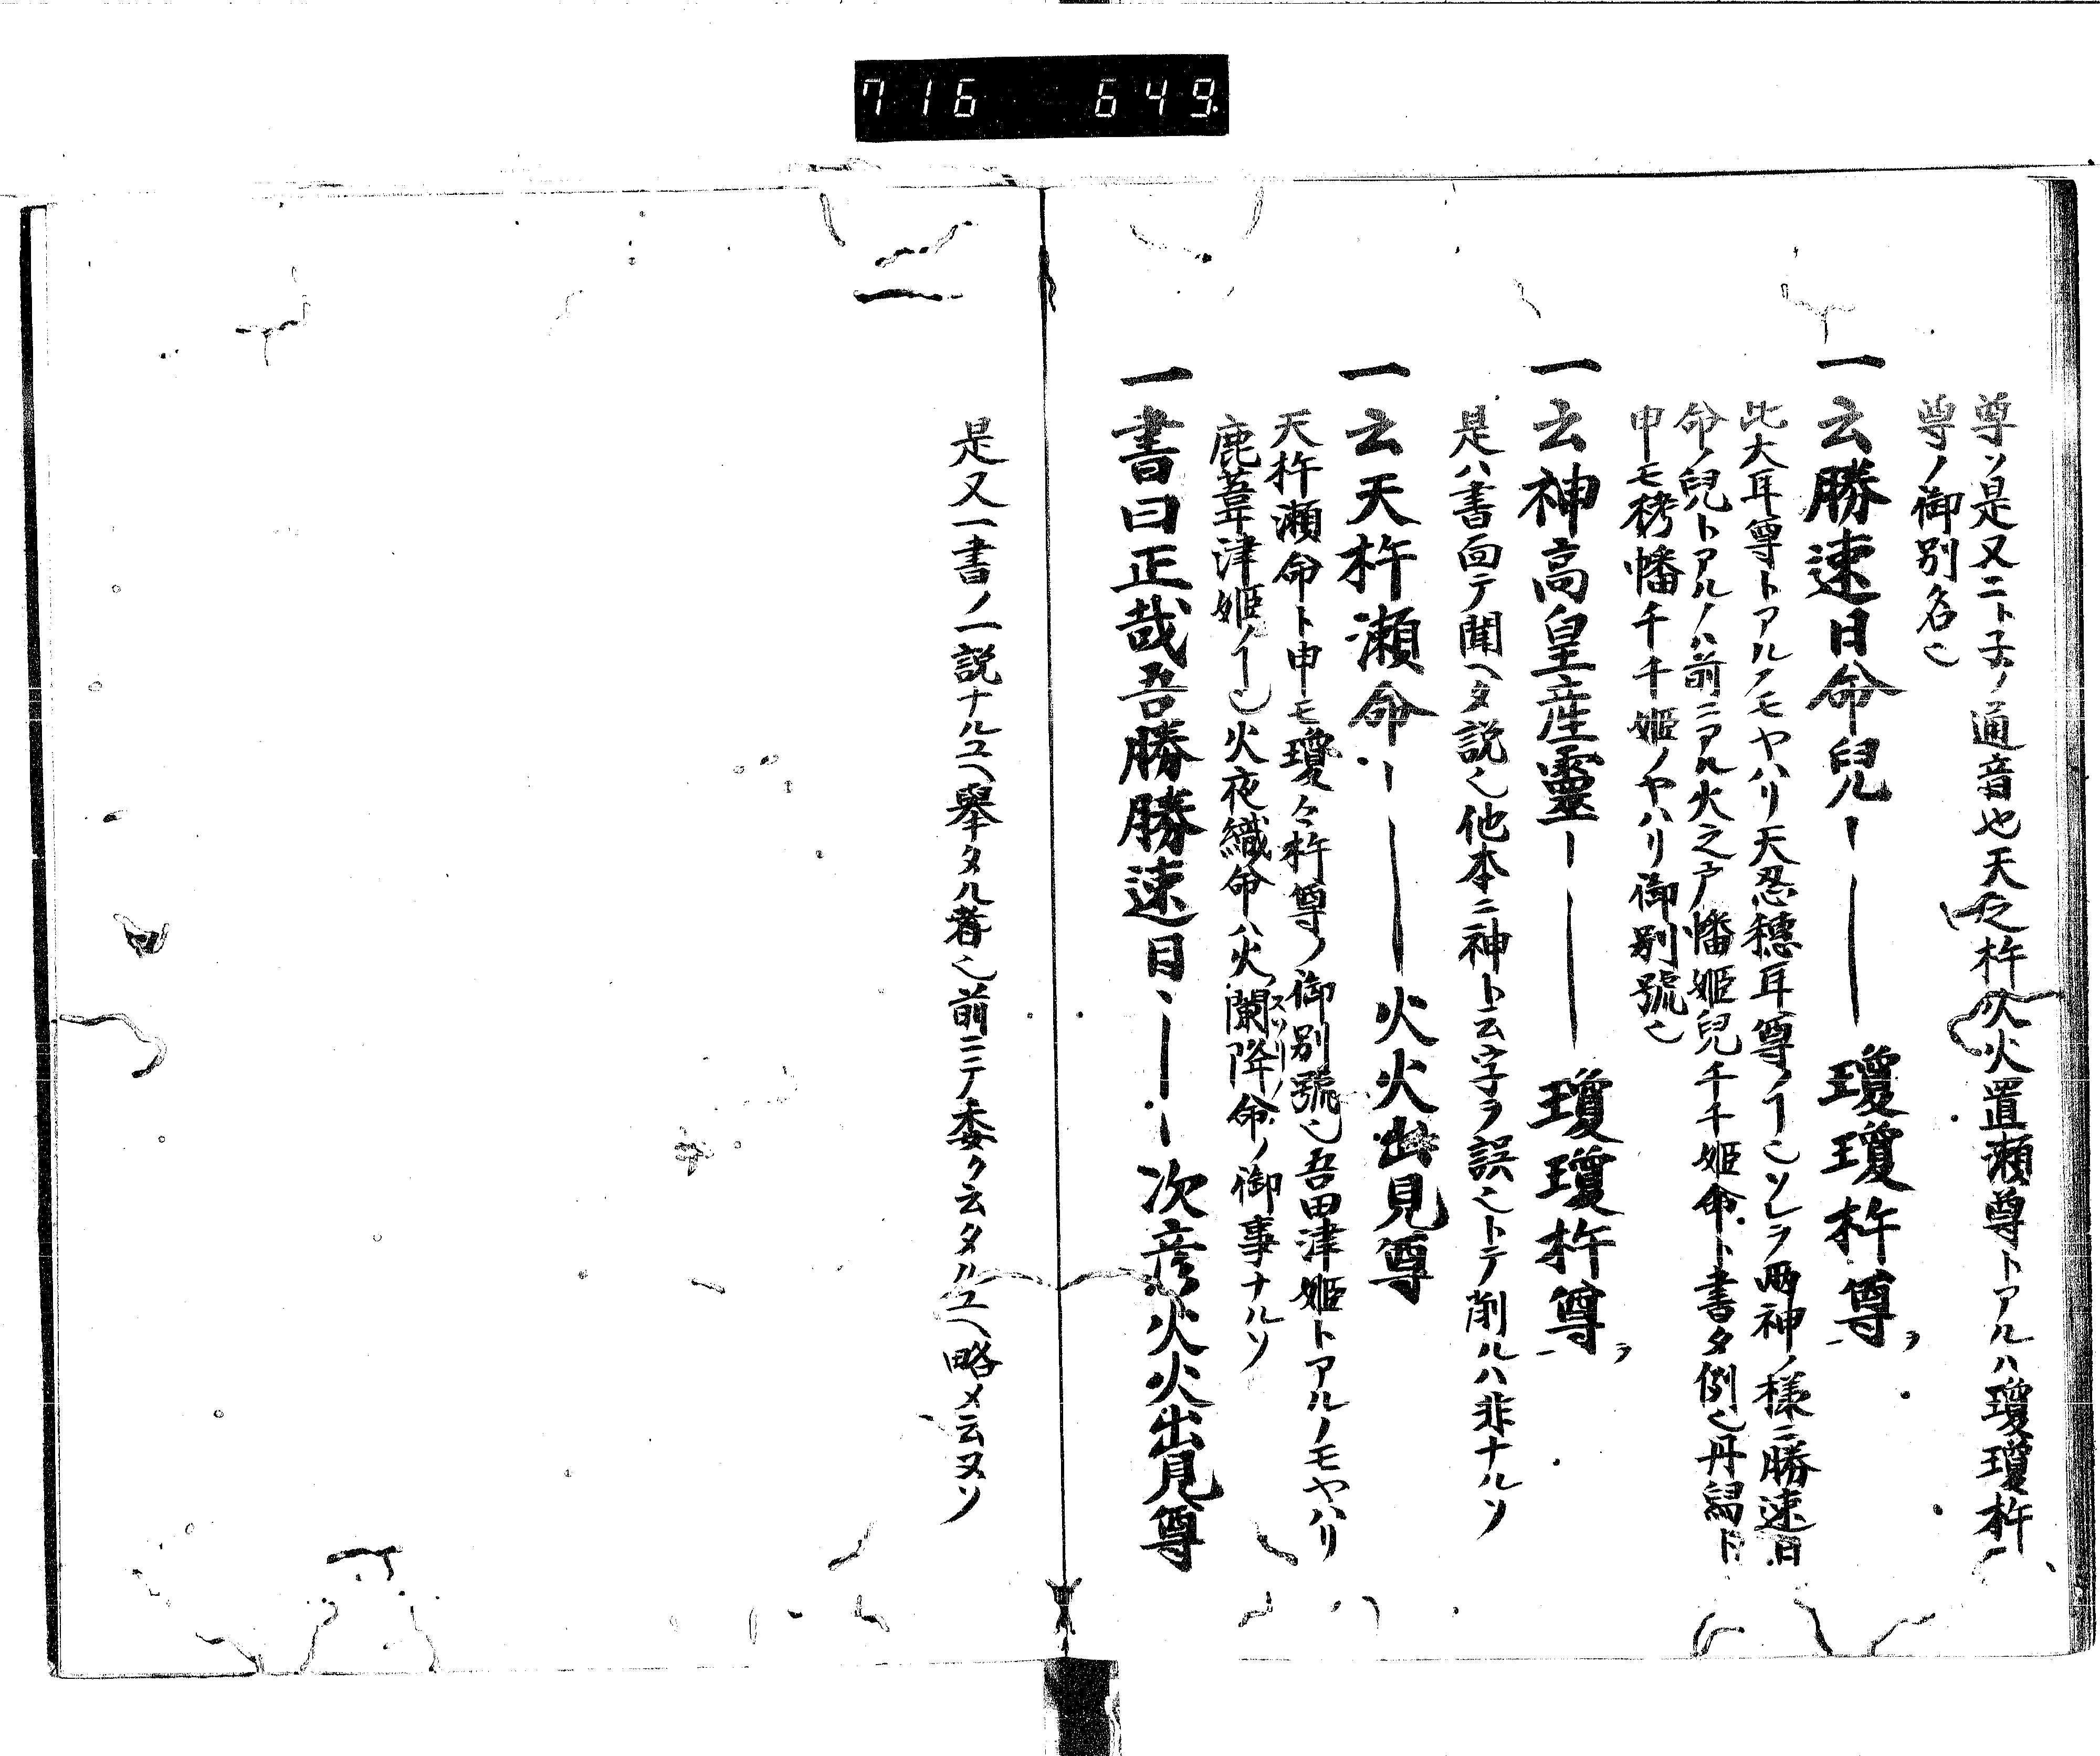 716 649
尊ソ是又ニト子ノ通音也天之杵火火置瀬尊トアルハ瓊瓊杵
尊ノ御別名也
一云勝速日命兒ー――瓊瓊杵尊ヲ
此大耳尊トアルノモヤハリ天忍穗耳尊ノヿ也ソレヲ両神ノ様ニ勝速日
命ノ兒トアルノハ前ニアル火之戸幡姫兒千千姫命ト書タ例也丹舄ト
申モ栲幡千千姫ノヤハリ御別號也
一云神高皇産靈ー――瓊瓊杵尊ヲ
是ハ書面テ聞ヘタ説也他本ニ神ト云字ヲ誤也トテ削ルハ非ナルソ
一云天杵瀬命ー――火火出見尊
天杵瀬命ト申モ瓊々杵尊ノ御別號也吾田津姫トアルノモヤハリ
鹿葦津姫ノヿ也火夜織命ハ火闌降命ノ御事ナルソ
スソリノ
一書曰正哉吾勝勝速日ー――次彦火火出見尊
是又一書ノ一説ナルユヘ舉タル者也前ニテ委ク云タルユヘ略メ云ヌソ